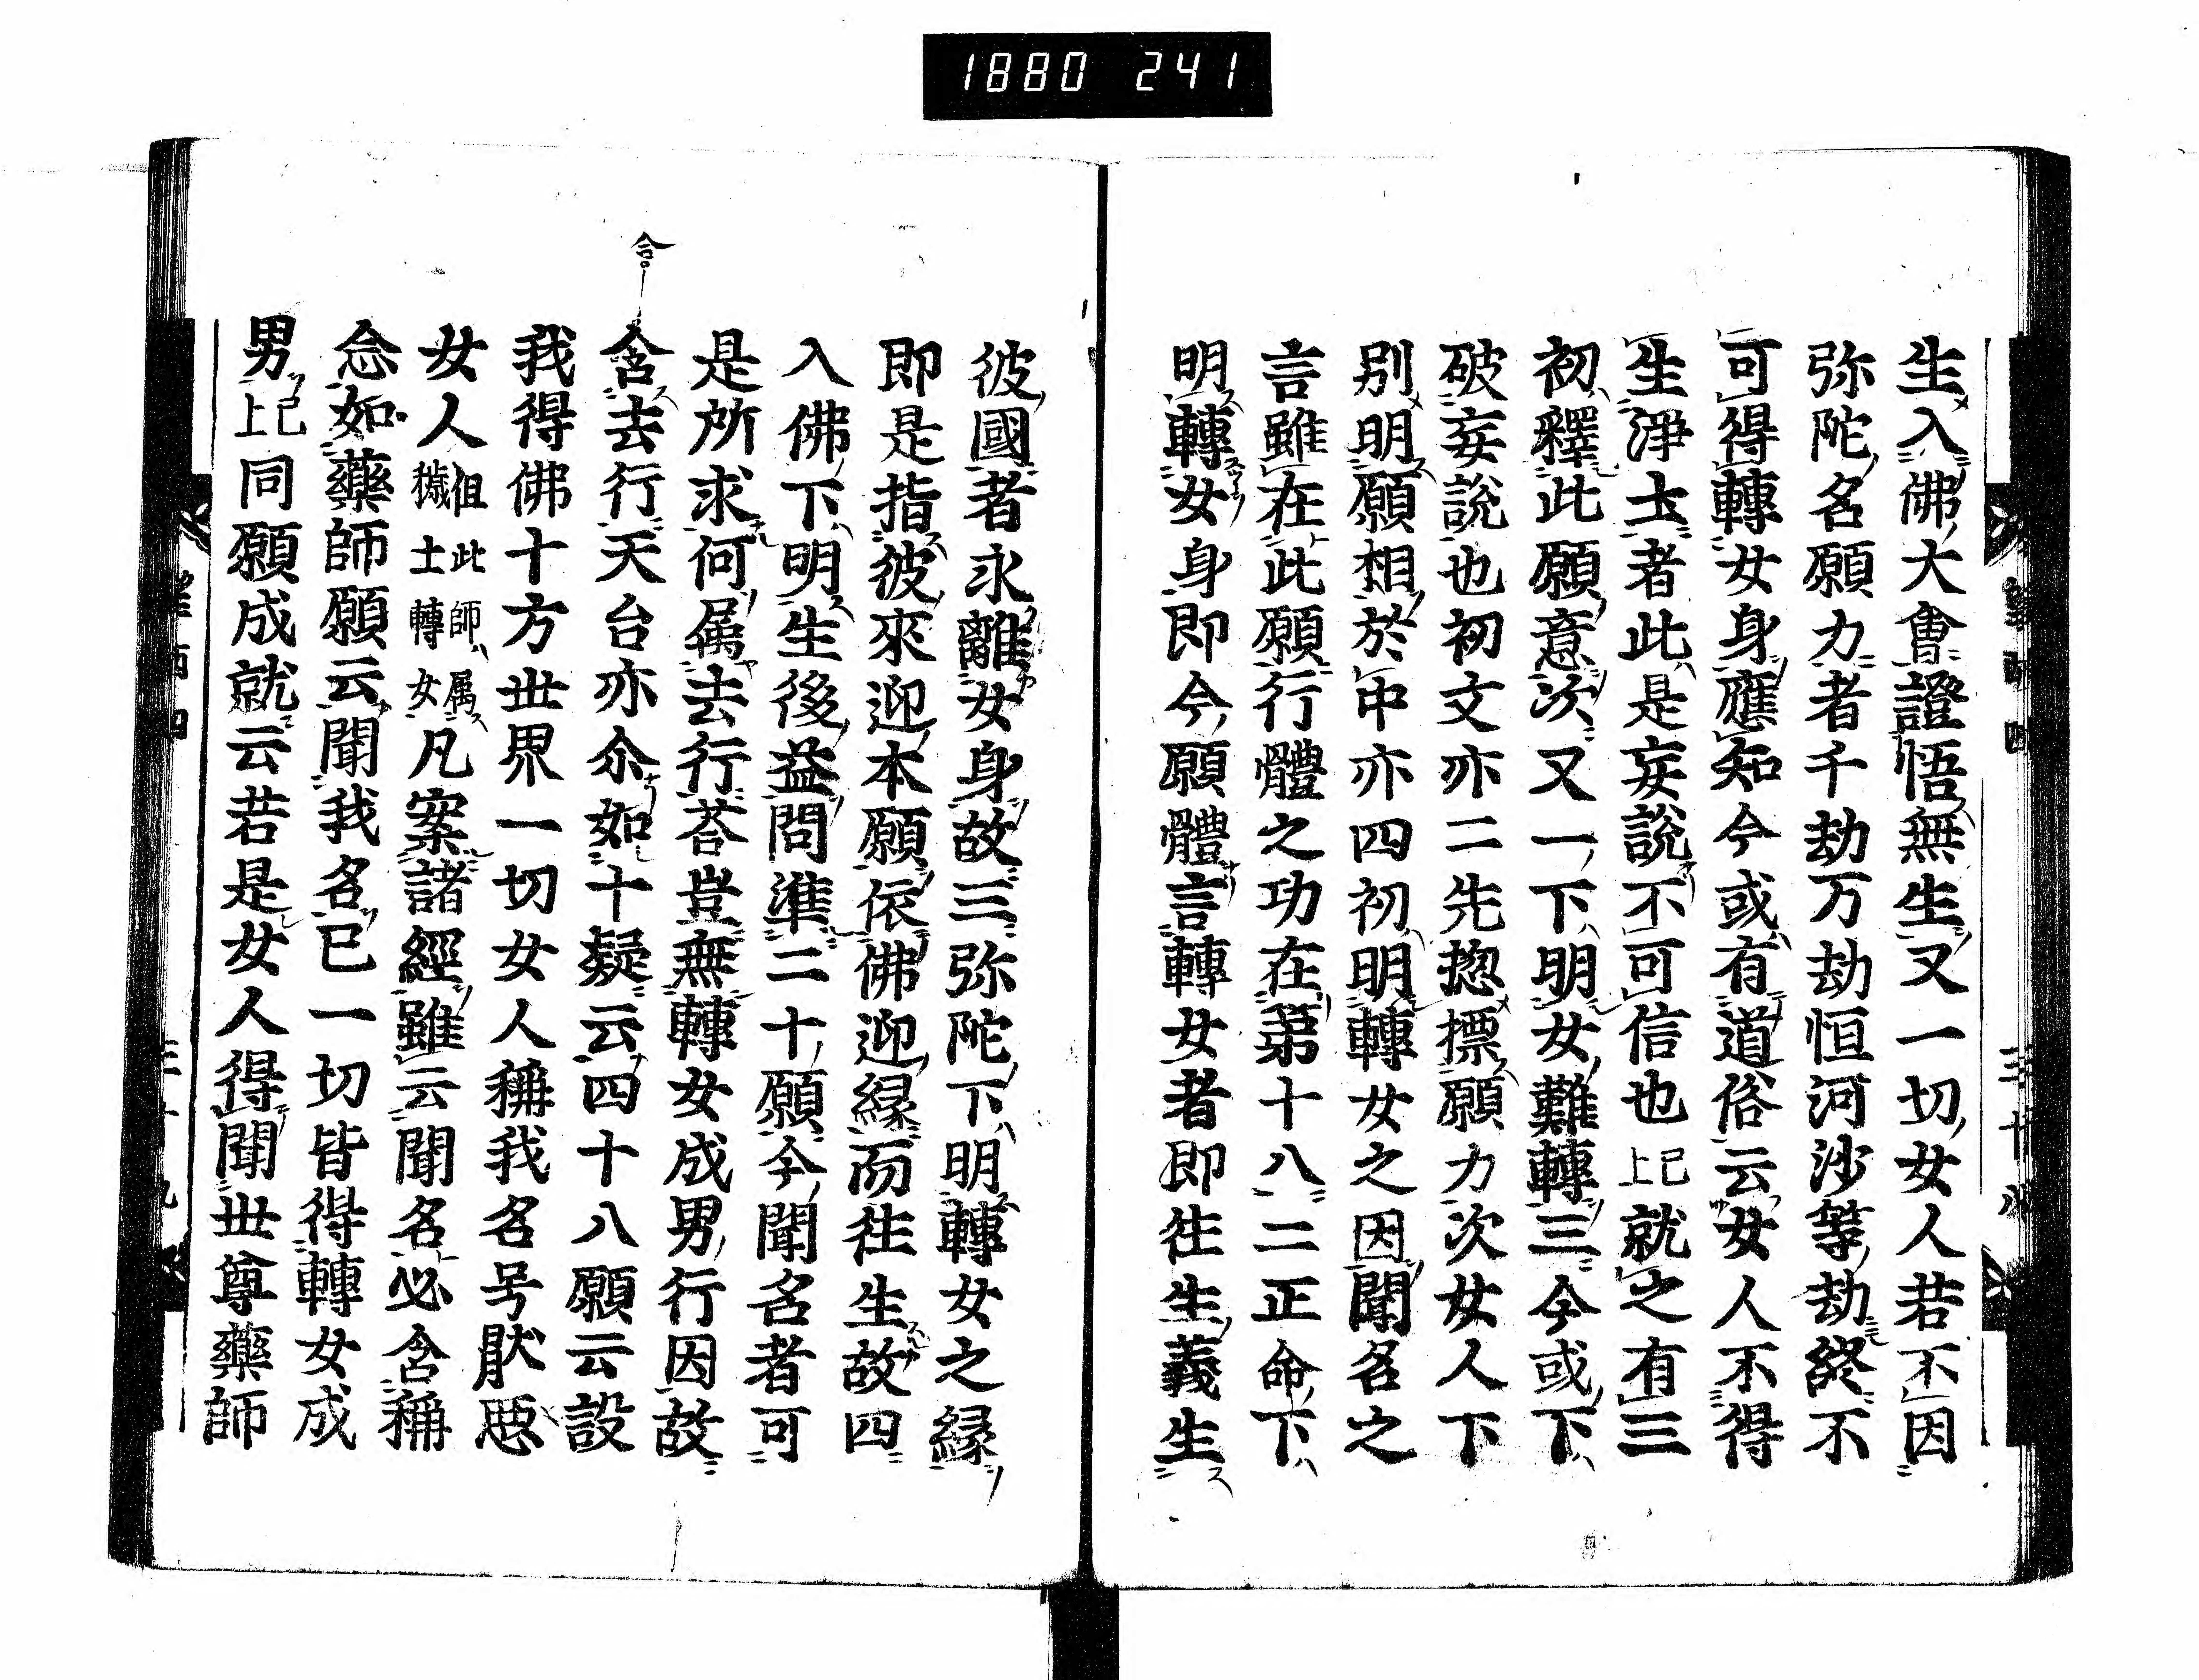 1880 241
生入佛大會證悟無生又一切女人若不因
弥陀名願力者千劫万劫恒河沙等劫終不
可得轉女身應知今或有道俗云女人不得
生淨土者此是妄說不可信也已上就之有三
初釋此願意次又一下明女難轉三今或下
破妄說也初文亦二先揔標願力次女人下
別明願相於中亦四初明轉女之因聞名之
言雖在此願行體之功在第十八二正命下
明轉女身即今願體言轉女者即往生義生
彼國者永離女身故三弥陀下明轉女之緣
即是指彼來迎本願依佛迎緣而往生故四
入佛下明生後益問準二十願今聞名者可
是所求何属去行荅豈無轉女成男行因故
含
含去行天台亦尒如十疑云四十八願云設
我得佛十方世界一切女人稱我名号猒惡
女人但此師属穢土轉女凡案諸經雖云聞名必含稱
念如藥師願云聞我名已一切皆得轉女成
男已上同願成就云若是女人得聞世尊藥師